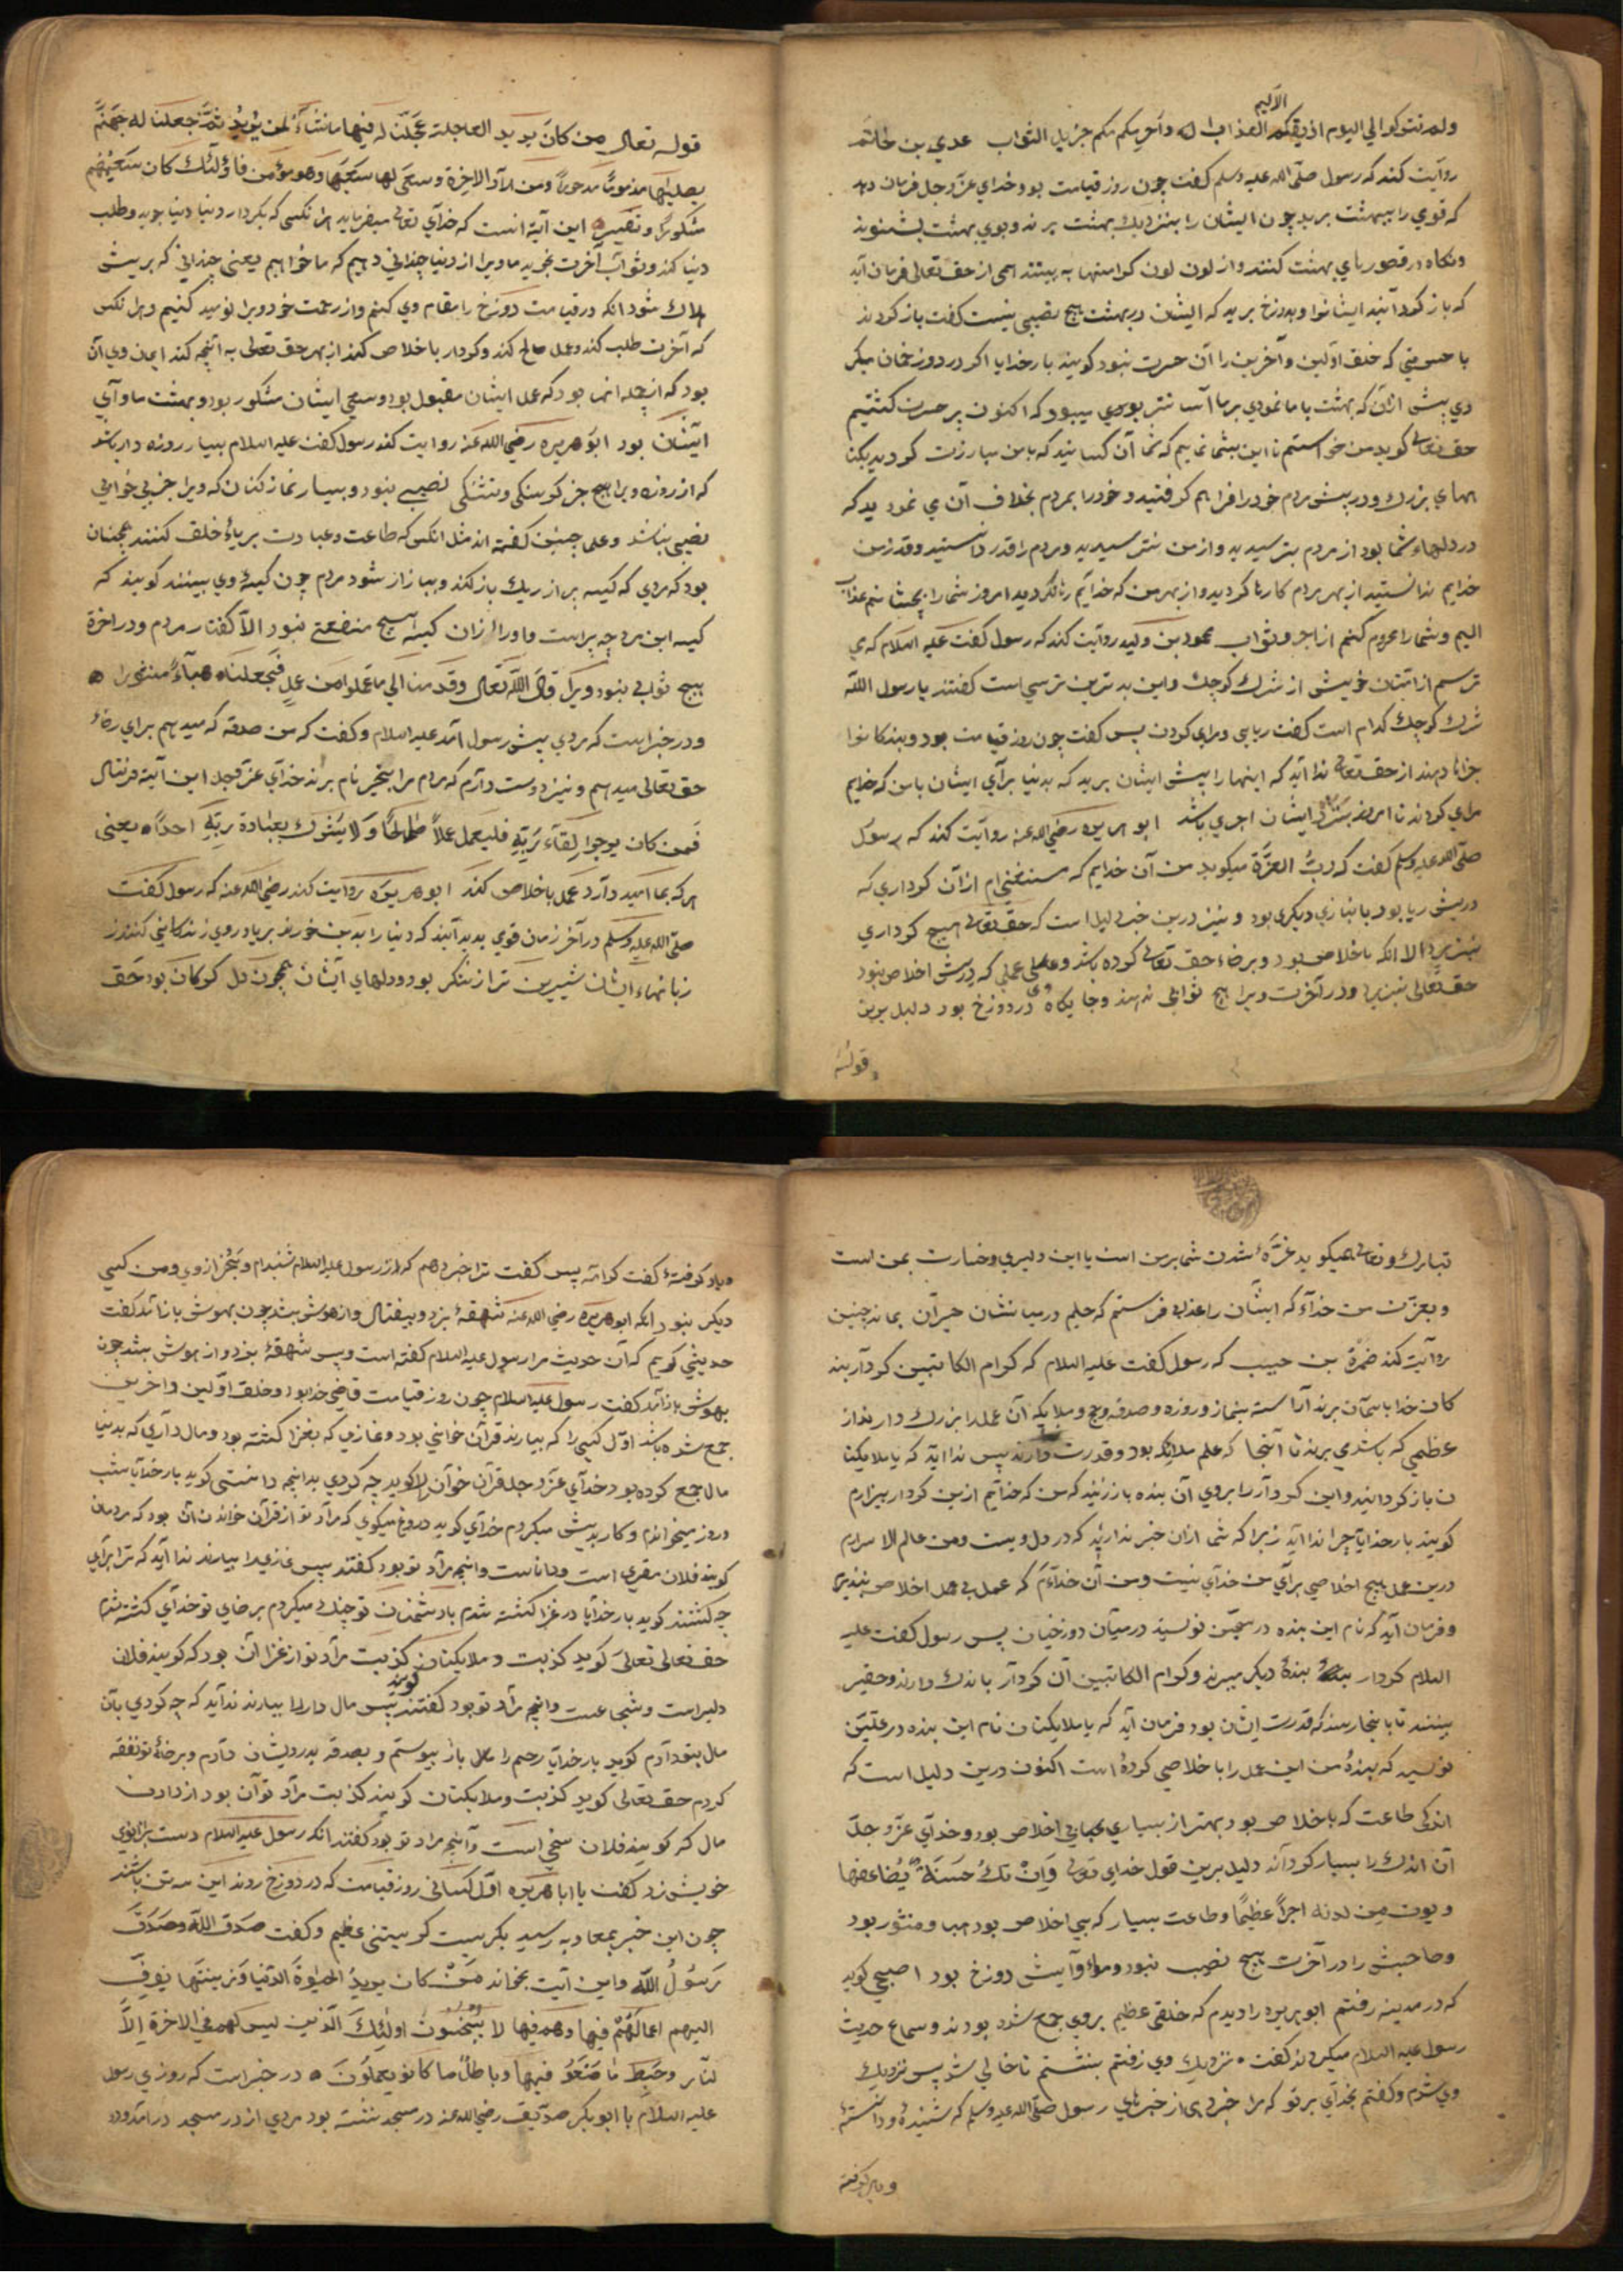 ولم تتركوا لي اليوم اذيقكم العذاب الاليم واحرمكم جزيل الثواب عدي بن حاتم
روايت كند كه رسول صلّى الله عليه وسلم كفت جون روز قيامت بود خداي عزّ وجل فرمان دهد
كه قومي را ببهشت بريد جون ايشان را بنزديك بهشت برند و بوي بهشت بشنوند
ونكاه در قصورهاي بهشت كنند و از لون لون كرامتها به بينند همى از حق تعالى فرمان آيد
كه باز كردانيد ايشانرا و بدوزخ بريد كه ايشان در بهشت هيج نصيبى نيست كفت باز كردند
با حسرتي كه خلق اوّلين و آخرين را آن حسرت نبود كويند بار خدايا اكر در دوزخمان ميكر
دي بيش ازان كه بهشت با ما نمودي بر ما آسانتر بودي كه اكنون بر حسرت كشتيم
حق تعالى كويد من خواستم تا اين بشما نمايم كه شما آن كسانيد كه با من مبارزت كرديد بكنا
ههاي بزرك و در بيش مردم خود را فراهم كرفتيد و خود را بمردم بخلاف آن مي نموديد كه
در دلهاء شما بود از مردم بترسيديد و از من نترسيديد و مردم را قدر دانستيد و قدر من
خدايم ندانستيد از بهر مردم كارها كرديد و از بهر من كه خدايم رها نكرديد امروز شما را بچشانم عذاب
اليم و شما را محروم كنم از اجر و ثواب محمود بن وليد روايت كند كه رسول كفت عليه السلام كه مي
ترسم از امتان خويش از شرك كوجك و اين بدترين ترسي است كفتند يا رسول الله
شرك كوجك كدام است كفت ريايى و مراي كردن بس كفت جون روز قيامت بود و بندكانرا
جزا دهند از حق تعالى ندا آيد كه اينها را بيش ايشان بريد كه بدنيا براي ايشان با من كه خدايم
مراي كردند تا امروز بنزديك ايشان اجري باشد ابو هريره رضي الله عنه روايت كند كه رسول
صلّى الله عليه وسلم كفت كه ربّ العزّة ميكويد من آن خدايم كه مستغنى ام ازان كرداري كه
دربيش ريا بود با نيازي ديكري بود و نيز درين خبر دليل است كه حق تعالى هيج كرداري
نبذيرد الا انكه باخلاص بود و برضاء حق تعالى كرده باشد و عملى كه درش اخلاص نبود
حق تعالى نبذيرد و در آخرت ويرا هيج ثوابي ندهند و جايكاه وى در دوزخ بود دليل برين
وقوله
قوله تعالى من كان يريد العاجلة عجّلنا له فيها ما نشاء لمن نريد ثمّ جعلنا له جهنّم
يصليها مذموماً مدحوراً ومن اراد الآخرة وسعى لها سعيها وهو مؤمن فاولئك كان سعيهم
مشكوراً وتفسير اين آية انست كه خداي تعالى ميفرمايد هرانكسى كه بكردار دنيا دنيا جويد و طلب
دنيا كند و ثواب آخرت نجويد ما ويرا از دنيا جنداني دهيم كه ما خواهيم يعنى جنداني كه بريش
هلاك شود انكه در قيامت دوزخ را مقام وي كنيم و از رحمت خود ويرا نوميد كنيم و هرانكس
كه آخرت طلب كند و عمل صالح كند و كردار باخلاص كند از بهر حق تعالى به آنجه كند ايمان وي آن
بود كه از جمله انها بود كه عمل ايشان مقبول بود و سعى ايشان مشكور بود و بهشت ماوآي
ايشان بود ابو هريره رضي الله عنه روايت كند رسول كفت عليه السلام بسيار روزه دار باشد
كه از روزه ويرا هيج جز كرسنكى و تشنكى نصيبى نبود و بسيار نماز كنان كه ويرا جز بي خوابي
نصيبى نباشد و علما جنين كفته اند مثل انكس كه طاعت و عبادت برياء خلق كنند همجنان
بود كه مردي كه كيسه بر از ريك باز كند و ببازار شود مردم جون كيسهٔ وي ببينند كويند كه
كيسه اين مرد جه براست و او را ازان كيسه هيج منفعتى نبود الا كفتار مردم و در اخرة
هيج ثوابى نبود ويرا قال الله تعالى وقدمنا الى ما عملوا من عمل فجعلناه هباءً منثورا
و در خبر است كه مردي بيش رسول آمد عليه السلام و كفت كه من صدقه كه ميدهم براي رضاء
حق تعالى ميدهم و نيز دوست دارم كه مردم مرا بخير نام برند خداي عزّ وجل اين آية فرستاد
فمن كان يرجوا لقاء ربّه فليعمل عملاً صالحاً ولا يشرك بعبادة ربّه احداً يعنى
هركه بما اميد دارد عمل باخلاص كند ابو هريره روايت كند رضي الله عنه كه رسول كفت
صلّى الله عليه وسلم در آخر زمان قومي بديد آيند كه دنيا را بدين خورند بريا و روي زندكاني كنند از
زبانهاء ايشان شيرين تر از شكر بود و دلهاي ايشان همجون دل كركان بود حق
تبارك وتعالى ميكويد غرّهٔ شدن شما برمن است يا اين دليري و خسارت بمن است
و بعزّت من خداي كه ايشان را عذابى فرستم كه حليم در ميان شان حيران بماند جنين
روايت كند ضمرة بن حبيب كه رسول كفت عليه السلام كه كرام الكاتبين كردار بند
كان خدا باسمان برند آراسته بنماز و روزه و صدقه و حج و ملايكه آن عمل را بزرك دارند از
عظيمى كه باشد مي برند تا آنجا كه علم ملايكه بود و قدرت دارند بس ندا آيد كه يا ملايكتا
ن باز كردانيد و اين كردار را بروي آن بنده باز زنيد كه من كه خدايم ازين كردار بيزارم
كويند بار خدايا جرا ندا آيد زيرا كه شما ازان خبر نداريد كه در دل ويست و من عالم الاسرارم
درين عمل هيج اخلاصي براي من خداي نيست و من آن خداءم كه عمل بى اخلاص نبذيرم
و فرمان آيد كه نام اين بنده در سجّين نويسيد در ميان دوزخيان بس رسول كفت عليه
السلام كردار بندهٔ ديكر ميبرند و كرام الكاتبين آن كردار باندك دارند و حقير
بينند تا بانجا رسند كه قدرت ايشان بود فرمان آيد كه يا ملايكتان نام اين بنده در علّيّين
نويسيد كه بندهٔ من اين عمل را باخلاصي كرده است اكنون درين دليل است كه
اندكى طاعت كه باخلاص بود بهتر از بسياري بي اخلاص بود و خداي عزّ وجلّ
آن اندك را بسيار كرداند دليل برين قول خداي تعالى وان تك حسنةً يضاعفها
ويؤت من لدنه اجراً عظيماً و طاعت بسيار كه بي اخلاص بود هبا و منثور بود
و صاحبش را در آخرت هيج نصيب نبود و ماوايش دوزخ بود اصبحي كويد
كه در مدينه رفتم ابو هريره را ديدم كه خلقى عظيم بروي جمع شده بودند و سماع حديث
رسول عليه السلام ميكردند كفت نزديك وي رفتم بنشستم تا خالي شد بس نزديك
وي شدم و كفتم بخداي بر تو كه مرا خبر دهى از خبرهاي رسول صلّى الله عليه وسلم كه شنيدهٔ و دانستهٔ
و ياد كرفته
و ياد كرفتهٔ كفت كه ارى بس كفت ترا خبر دهم كه از رسول عليه السلام شنيدام و بجز از وي و من كسي
ديكر نبود انكه ابو هريره رضي الله عنه شهقهٔ بزد و بيفتاد و از هوش بشد جون بهوش باز آمد كفت
حديثي كويم كه آن حديث مرا رسول عليه السلام كفته است و بس شهقهٔ بزد و از هوش بشد جون
بهوش باز آمد كفت رسول عليه السلام جون روز قيامت قاضي خدا بود و خلق اوّلين و آخرين
جمع شده باشند اوّل كسى را كه بيارند قرآن خواني بود و غازي كه بغزا كشته بود و مال داري كه بدنيا
مال جمع كرده بود خداي عزّ وجل قرآن خوان را كويد جه كردي بدانجه دانستى كويد بار خدايا شب
و روز ميخواندم و كار بيش ميكردم خداي كويد دروغ ميكوي كه مراد تو از قرآن خواندن آن بود كه مردمان
كويند فلان مقرى است و داناست و انجه مراد تو بود كفتند بس غازي را بيارند ندا آيد كه ترا براي
جه كشتند كويد بار خدايا در غزا كشته شدم با دشمنان تو جنك ميكردم برضاي تو خداي كشته شدم
حق تعالى كويد كذبت و ملايكتان كويند كذبت مراد تو از غزا آن بود كه كويند فلان
دليرست و شجاعست و انجه مراد تو بود كفتند بس مال دار را بيارند ندا آيد كه جه كردي بآن
مال بتو دادم كويد بار خدايا رحم را بمال باز بيوستم و بصدقه بدرويشان دادم و برضاء تو نفقه
كردم حق تعالى كويد كذبت و ملايكتان كويند كذبت مراد تو آن بود از دادن
مال كه كويند فلان سخى است و انجه مراد تو بود كفتند انكه رسول عليه السلام دست بزانوي
خويش زد كفت يا ابا هريره اوّل كساني روز قيامت كه در دوزخ روند اين سه تن باشند
جون اين خبر بمعاويه رسيد بكريست كريستنى عظيم و كفت صدق الله وصدق
رسول الله و اين آيت بخواند من كان يريد الحيوة الدنيا وزينتها نوفّ
اليهم اعمالهم فيها وهم فيها لا يبخسون اولئك الذين ليس لهم في الآخرة الاّ
النار وحبط ما صنعوا فيها وباطل ما كانوا يعملون در خبر است كه روزي رسول
عليه السلام با ابو بكر صدّيق رضي الله عنه در مسجد نشسته بود مردي از در مسجد درآمد و دو